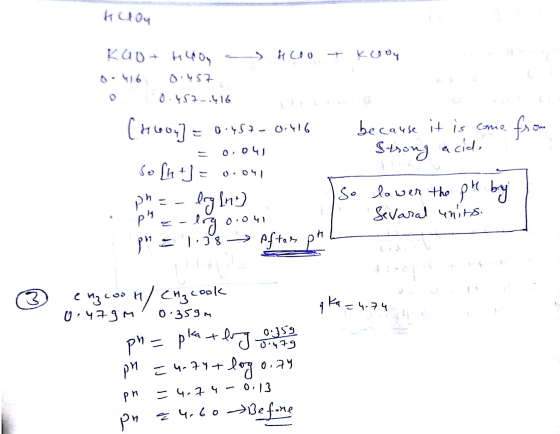 HClO4
KClO + HClO4 → HClO + KClO4
0.416 0.457
0 0.457-.416
[HClO4] = 0.457 - 0.416
= 0.041
because it is come from
strong acid.
So [H+] = 0.041
pH = - log [H+]
pH = - log 0.041
pH = 1.38 → After pH
So lower the pH by
Several units.
③ CH3COOH / CH3COOK
0.479M 0.359M
pKa = 4.74
pH = pKa + log 0.359/0.479
pH = 4.74 + log 0.74
pH = 4.74 - 0.13
pH = 4.60 → Before